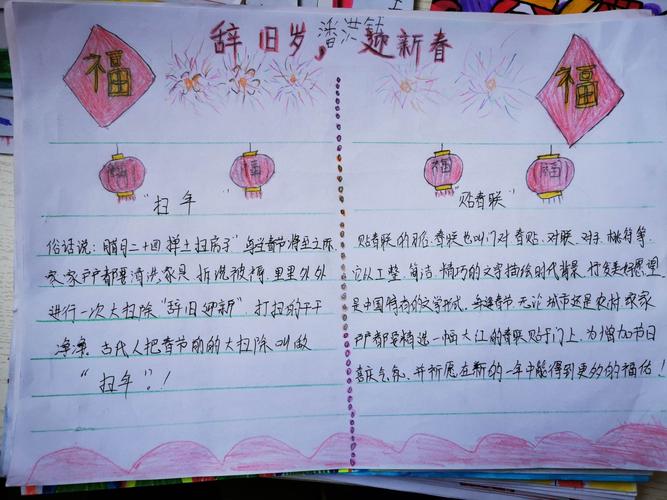 辞旧岁，迎新春
潘洪
福
福
福
福
福
"扫年"
俗话说：腊月二十四掸土扫房子 每当春节将至之际
家家户户都要清洗家具 拆洗被褥，里里外外
进行一次大扫除"辞旧迎新"，打扫的干干
净净，古代人把春节前的大扫除叫做
"扫年"。！
"贴春联"
贴春联的习俗.春联也叫门对 春贴、对联、对子、桃符等
它以工整、简洁、精巧的文字描绘时代背景、抒发美好愿望
是中国特有的文学形式、每逢春节 无论城市还是农村 家家
户户都要精选一幅大红的春联贴于门上，为增加节日
喜庆气氛、并祈愿在新的一年中能得到更多的福佑！